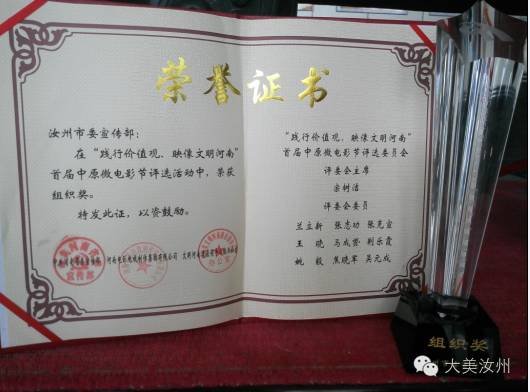 荣誉证书
汝州市委宣传部：
在“践行价值观、映像文明河南”
首届中原微电影节评选活动中，荣获
组织奖。
特发此证，以资鼓励。
“践行价值观、映像文明河南”
首届中原微电影节评选委员会
评委会主席
宗树洁
评委会委员
兰立新 张志功 张克宣
王晓 马成营 荆乐霞
姚毅 焦晓军 吴元成
组织奖
大美汝州